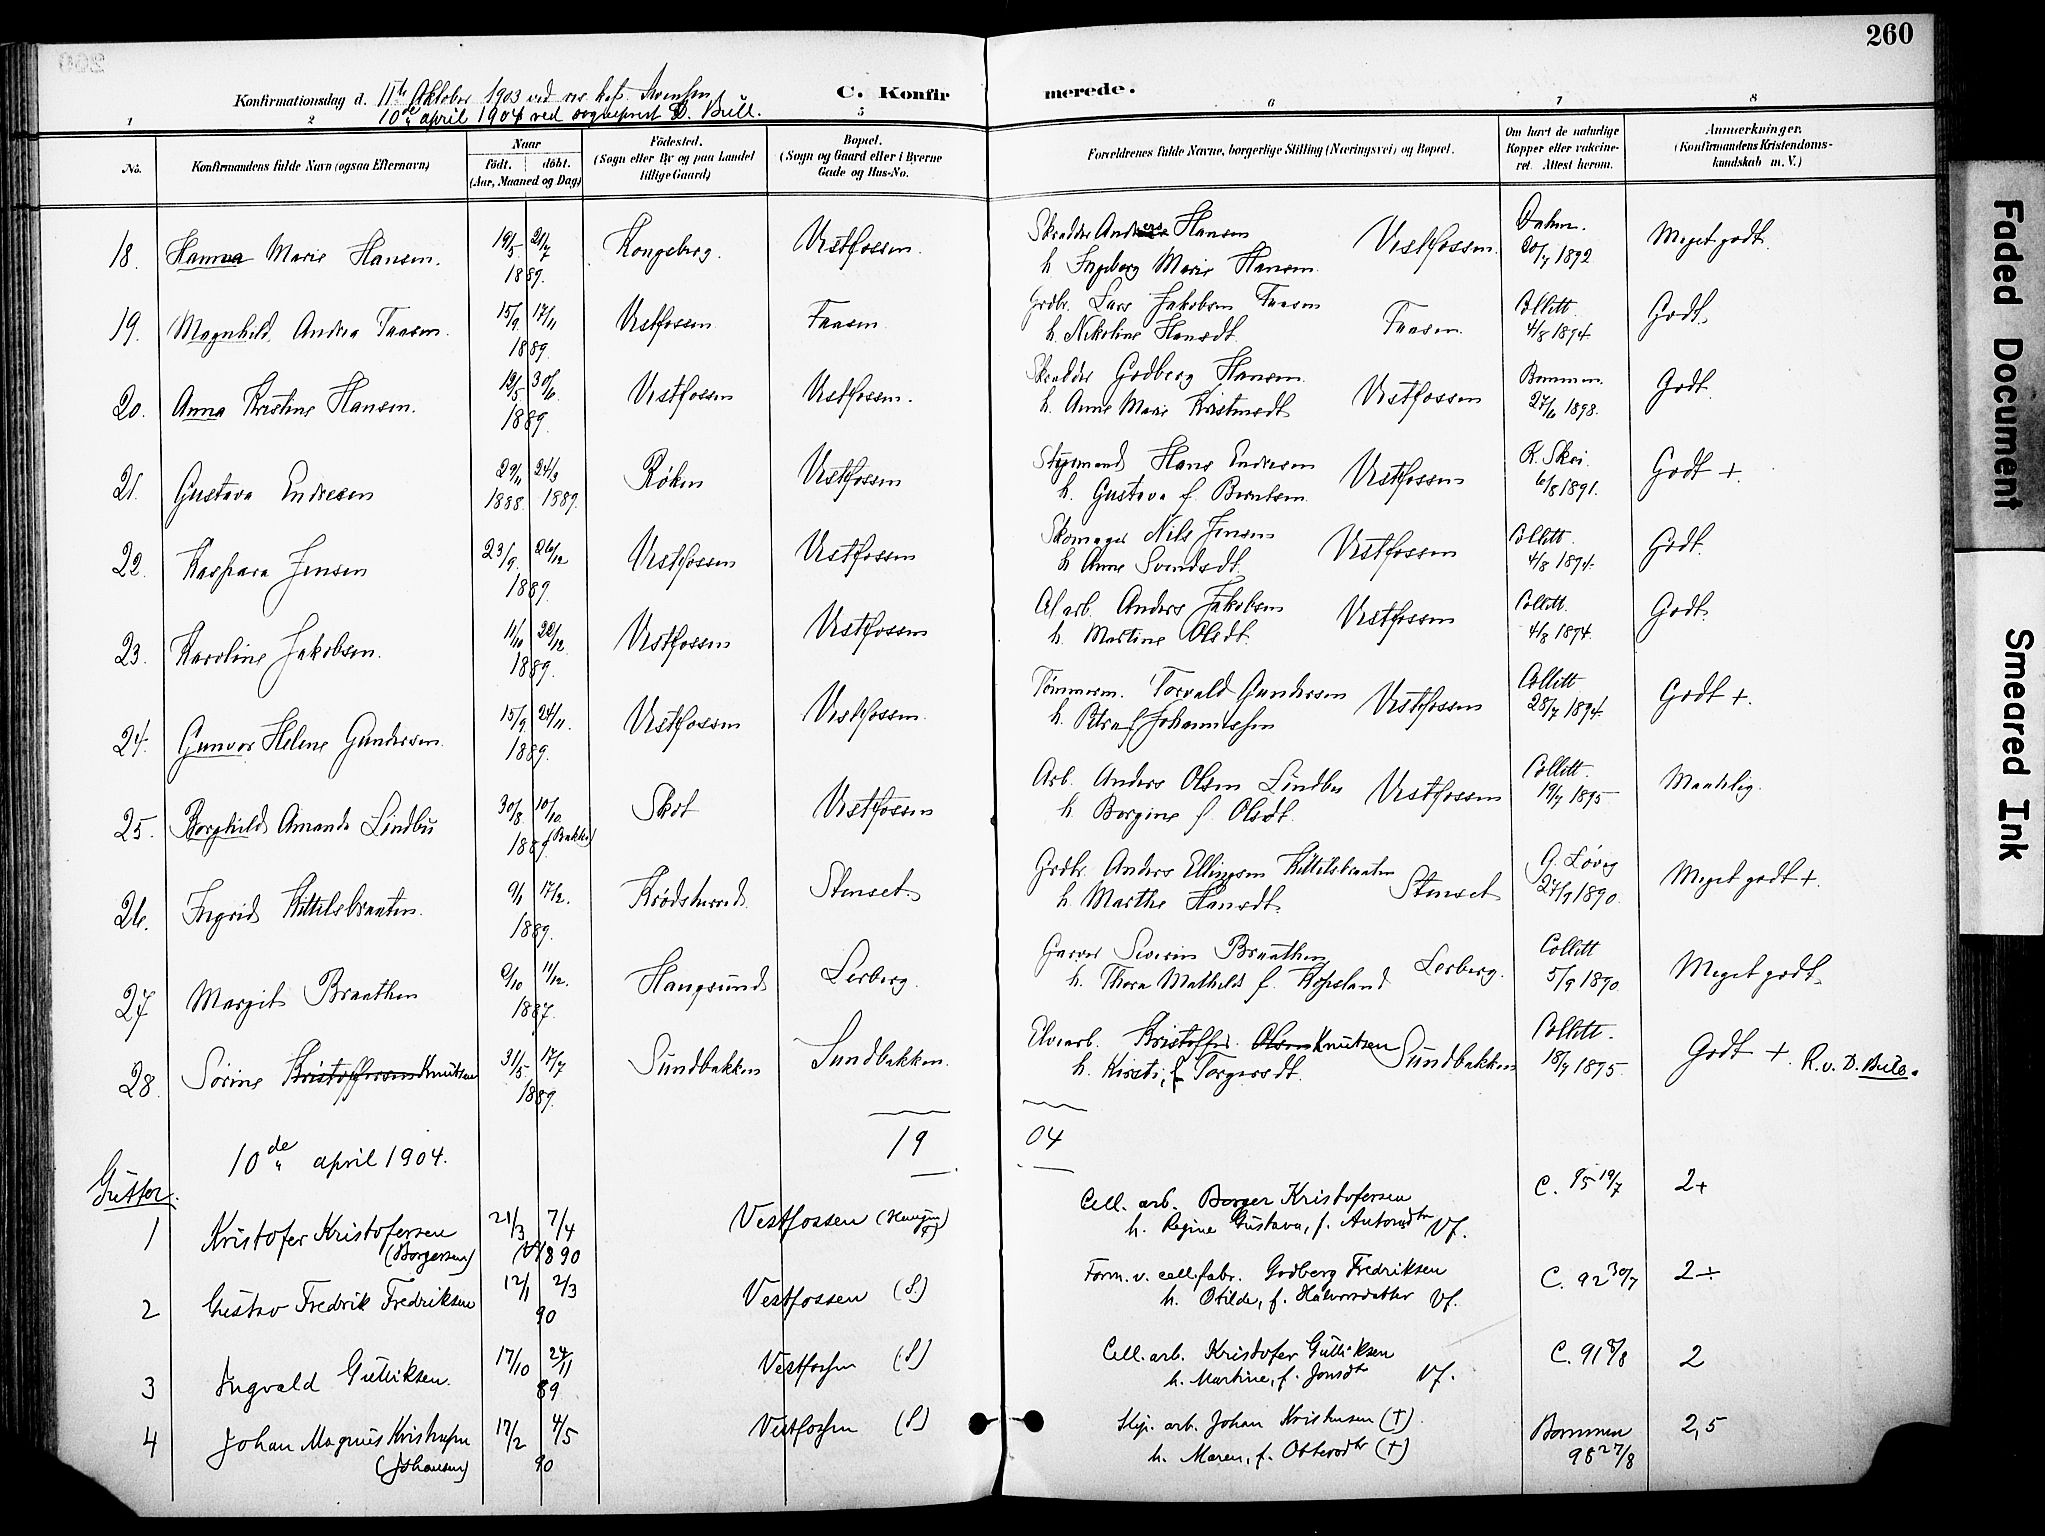 260
Konfirmationsdag d. 11te Oktober 1903 ved res. kap. Svensen
10de april 1904 ved sogneprest D. Bull.
C. Konfirmerede.
1 2 5 6 7 8
No.
Konfirmandens fulde Navn (ogsaa Efternavn)
Naar
født. døbt.
(Aar, Maaned og Dag)
Fødested.
(Sogn eller By og paa Landet
tillige Gaard)
Bopæl.
(Sogn og Gaard eller i Byerne
Gade og Hus-No.
Forældrenes fulde Navne, borgerlige Stilling (Næringsvei) og Bopæl.
Om havt de naturlige
Kopper eller vaccine-
ret. Attest herom.
Anmærkninger.
(Konfirmandens Kristendoms-
kundskab m. V.)
18. Hanna Marie Hansen. 19/5 21/7 1889. Kongsberg. Vestfossen. Skrædder Anders Hansen Vestfossen. Meget godt.
h. Ingeborg Marie Hansen 20/7 1892
19. Magnhild Andrea Faasen. 15/9 17/11 1889. Vestfossen Faasen Grdbr. Lars Jakobsen Faasen Faasen. Collett. Godt.
h. Nikoline Hansdt. 4/8 1894.
20. Anna Kristine Hansen. 12/5 30/6 1889. Vestfossen Vestfossen. Skrædder Godberg Hansen Vestfossen Bommen. Godt.
h. Anne Marie Kristensdt 27/6 1898.
21. Gustava Endresen 29/11 1888. 24/3 1889. Røken Vestfossen Styrmand Hans Endresen Vestfossen R. Skei. Godt +.
h. Gustava f. Berntsen 6/8 1891.
22. Kaspara Jensen 23/9. 26/12 1889. Vestfossen Vestfossen Skomager Nils Jensen Vestfossen Collett. Godt.
h. Anne Svendsdt. 4/8 1894.
23. Karoline Jakobsen. 11/10 22/12. 1889. Vestfossen Vestfossen Cel arb. Anders Jakobsen Vestfossen Collett. Godt.
h. Martine Olsdt. 4/8 1894.
24. Gunvor Helene Gundersen 15/9 24/11. 1889. Vestfossen Vestfossen. Tømmerm. Torvald Gundersen Vestfossen Collett Godt +.
h. Petra f Johannessen 28/7 1894.
25. Borghild Amanda Lindbu 30/8 10/10. 188 (Bakke) Skot Vestfossen Arb. Anders Olsen Lindbu Vestfossen Collett. Maadelig.
h. Borgine f. Olsdt. 19/7 1895
26. Ingrid Kittelsbraaten. 9/1 17/2. 1889. Krødsherred. Stenset. Grdbr. Anders Ellingsen Kittelsbraaten Stenset G. Løvig Meget godt +.
h. Marthe Hansdt. 27/9 1890.
27 Margit Braathen 11/12. 1887. Haugsund Lerberg. Garver Severin Braathen Lerberg. Collett Meget godt.
h. Thora Mathilde f. Hofsland 5/9 1890.
28. Sørine Kristoffersen Knutsen 31/5. 17/7 1889. Sundbakken Sundbakken. Elvearb. Kristoffer Olsen Knutsen Sundbakken Collett. Godt +. R. v. D. Bull.
h. Kirsti, f Torgersdt. 18/7 1895.
10de april 1904. 1904
Gutter.
1 Kristofer Kristofersen 21/3 7/4 Vestfossen Cell. arb. Borger Kristofersen C. 95 19/7 2+
(Borgersen) 1890 h. Regine Gustava, f. Antonsdtr Vf.
2 Gustav Fredrik Fredriksen 12/1 2/3 90 Vestfossen (S.) Form. v. cell. fabr. Godberg Fredriksen C. 92 30/7 2÷
h. Otilde, f. Halvorsdatter Vf.
3 Ingvald Gulliksen. 17/10 24/11 89 Vestfossen (S) Cell. arb. Kristofer Gulliksen C. 91 8/8 2
h. Martine, f. Jonsdtr Vf.
4 Johan Magnus Kristensen 17/2 4/5 Vestfossen (S) arb. Johan Kristensen (†). Bommen 2,5
(Johansen) 90 h. Maren, f. Ottersdtr (†) 98 27/8
Faded Document
Smeared Ink